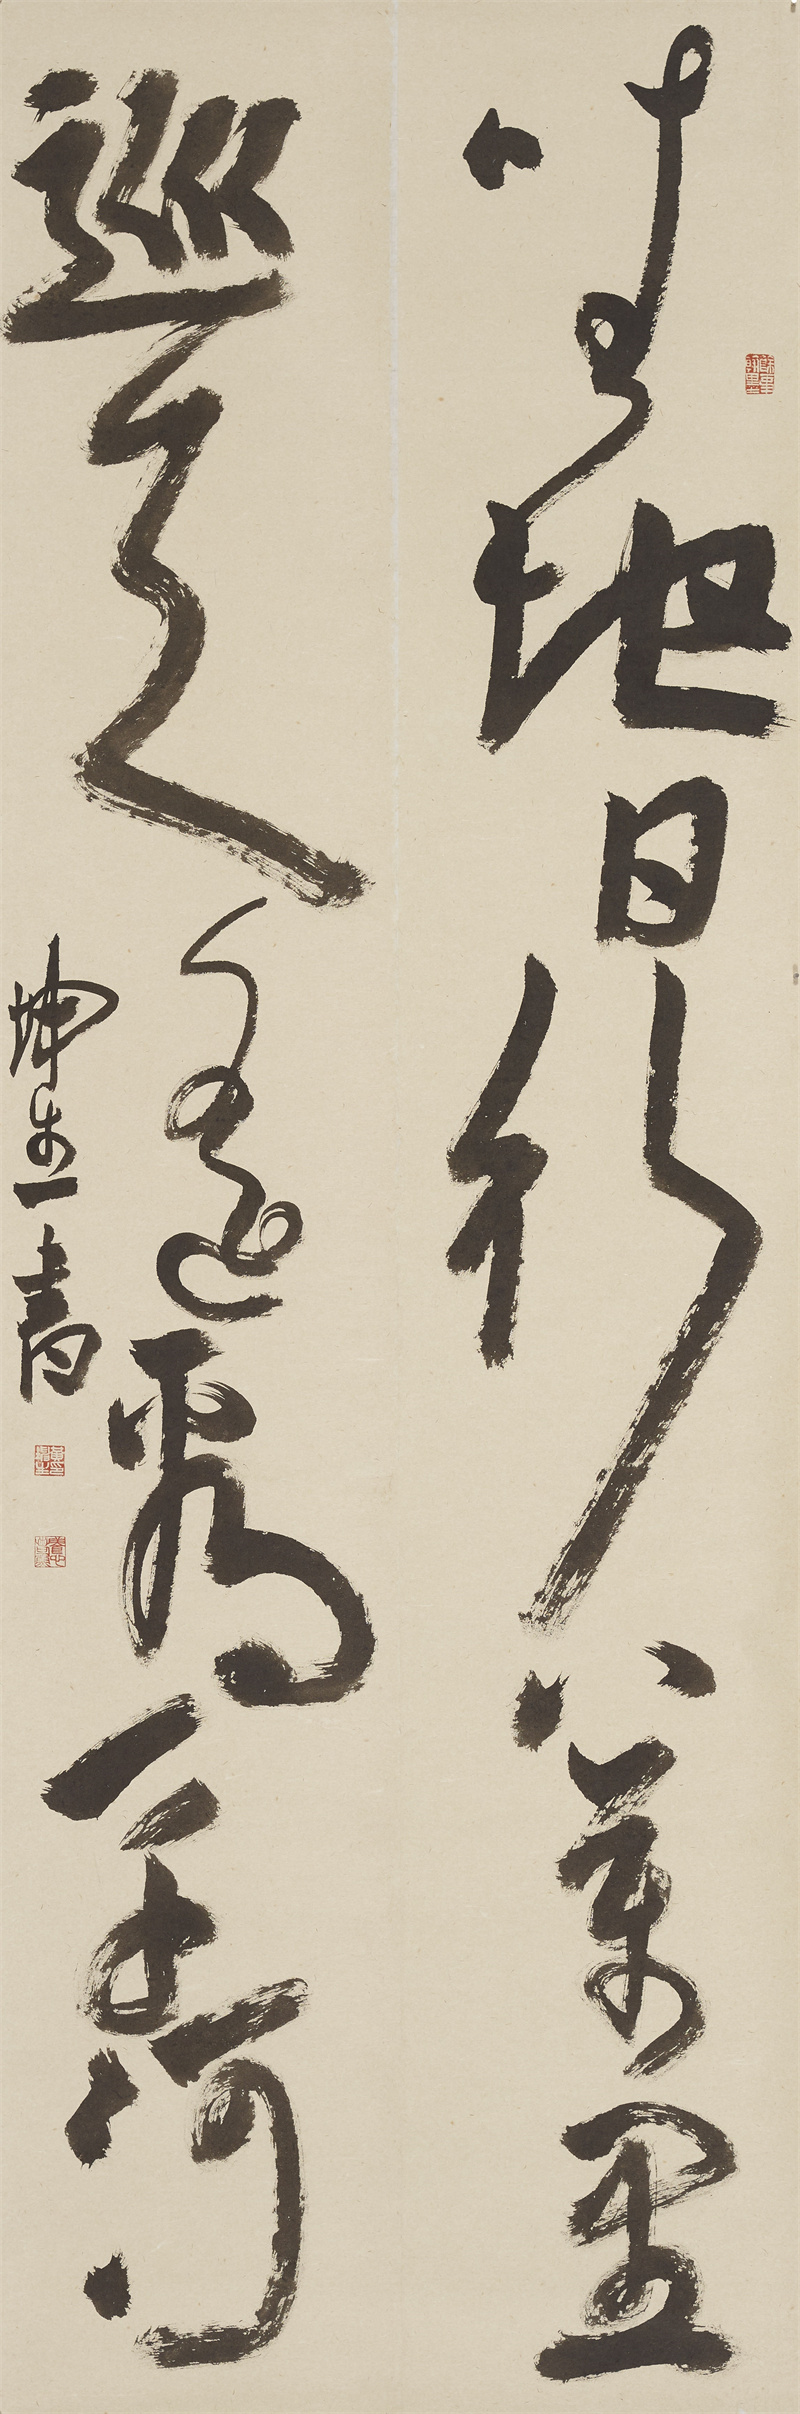 坐地日行八萬里
巡天遙看一千河
坤生書